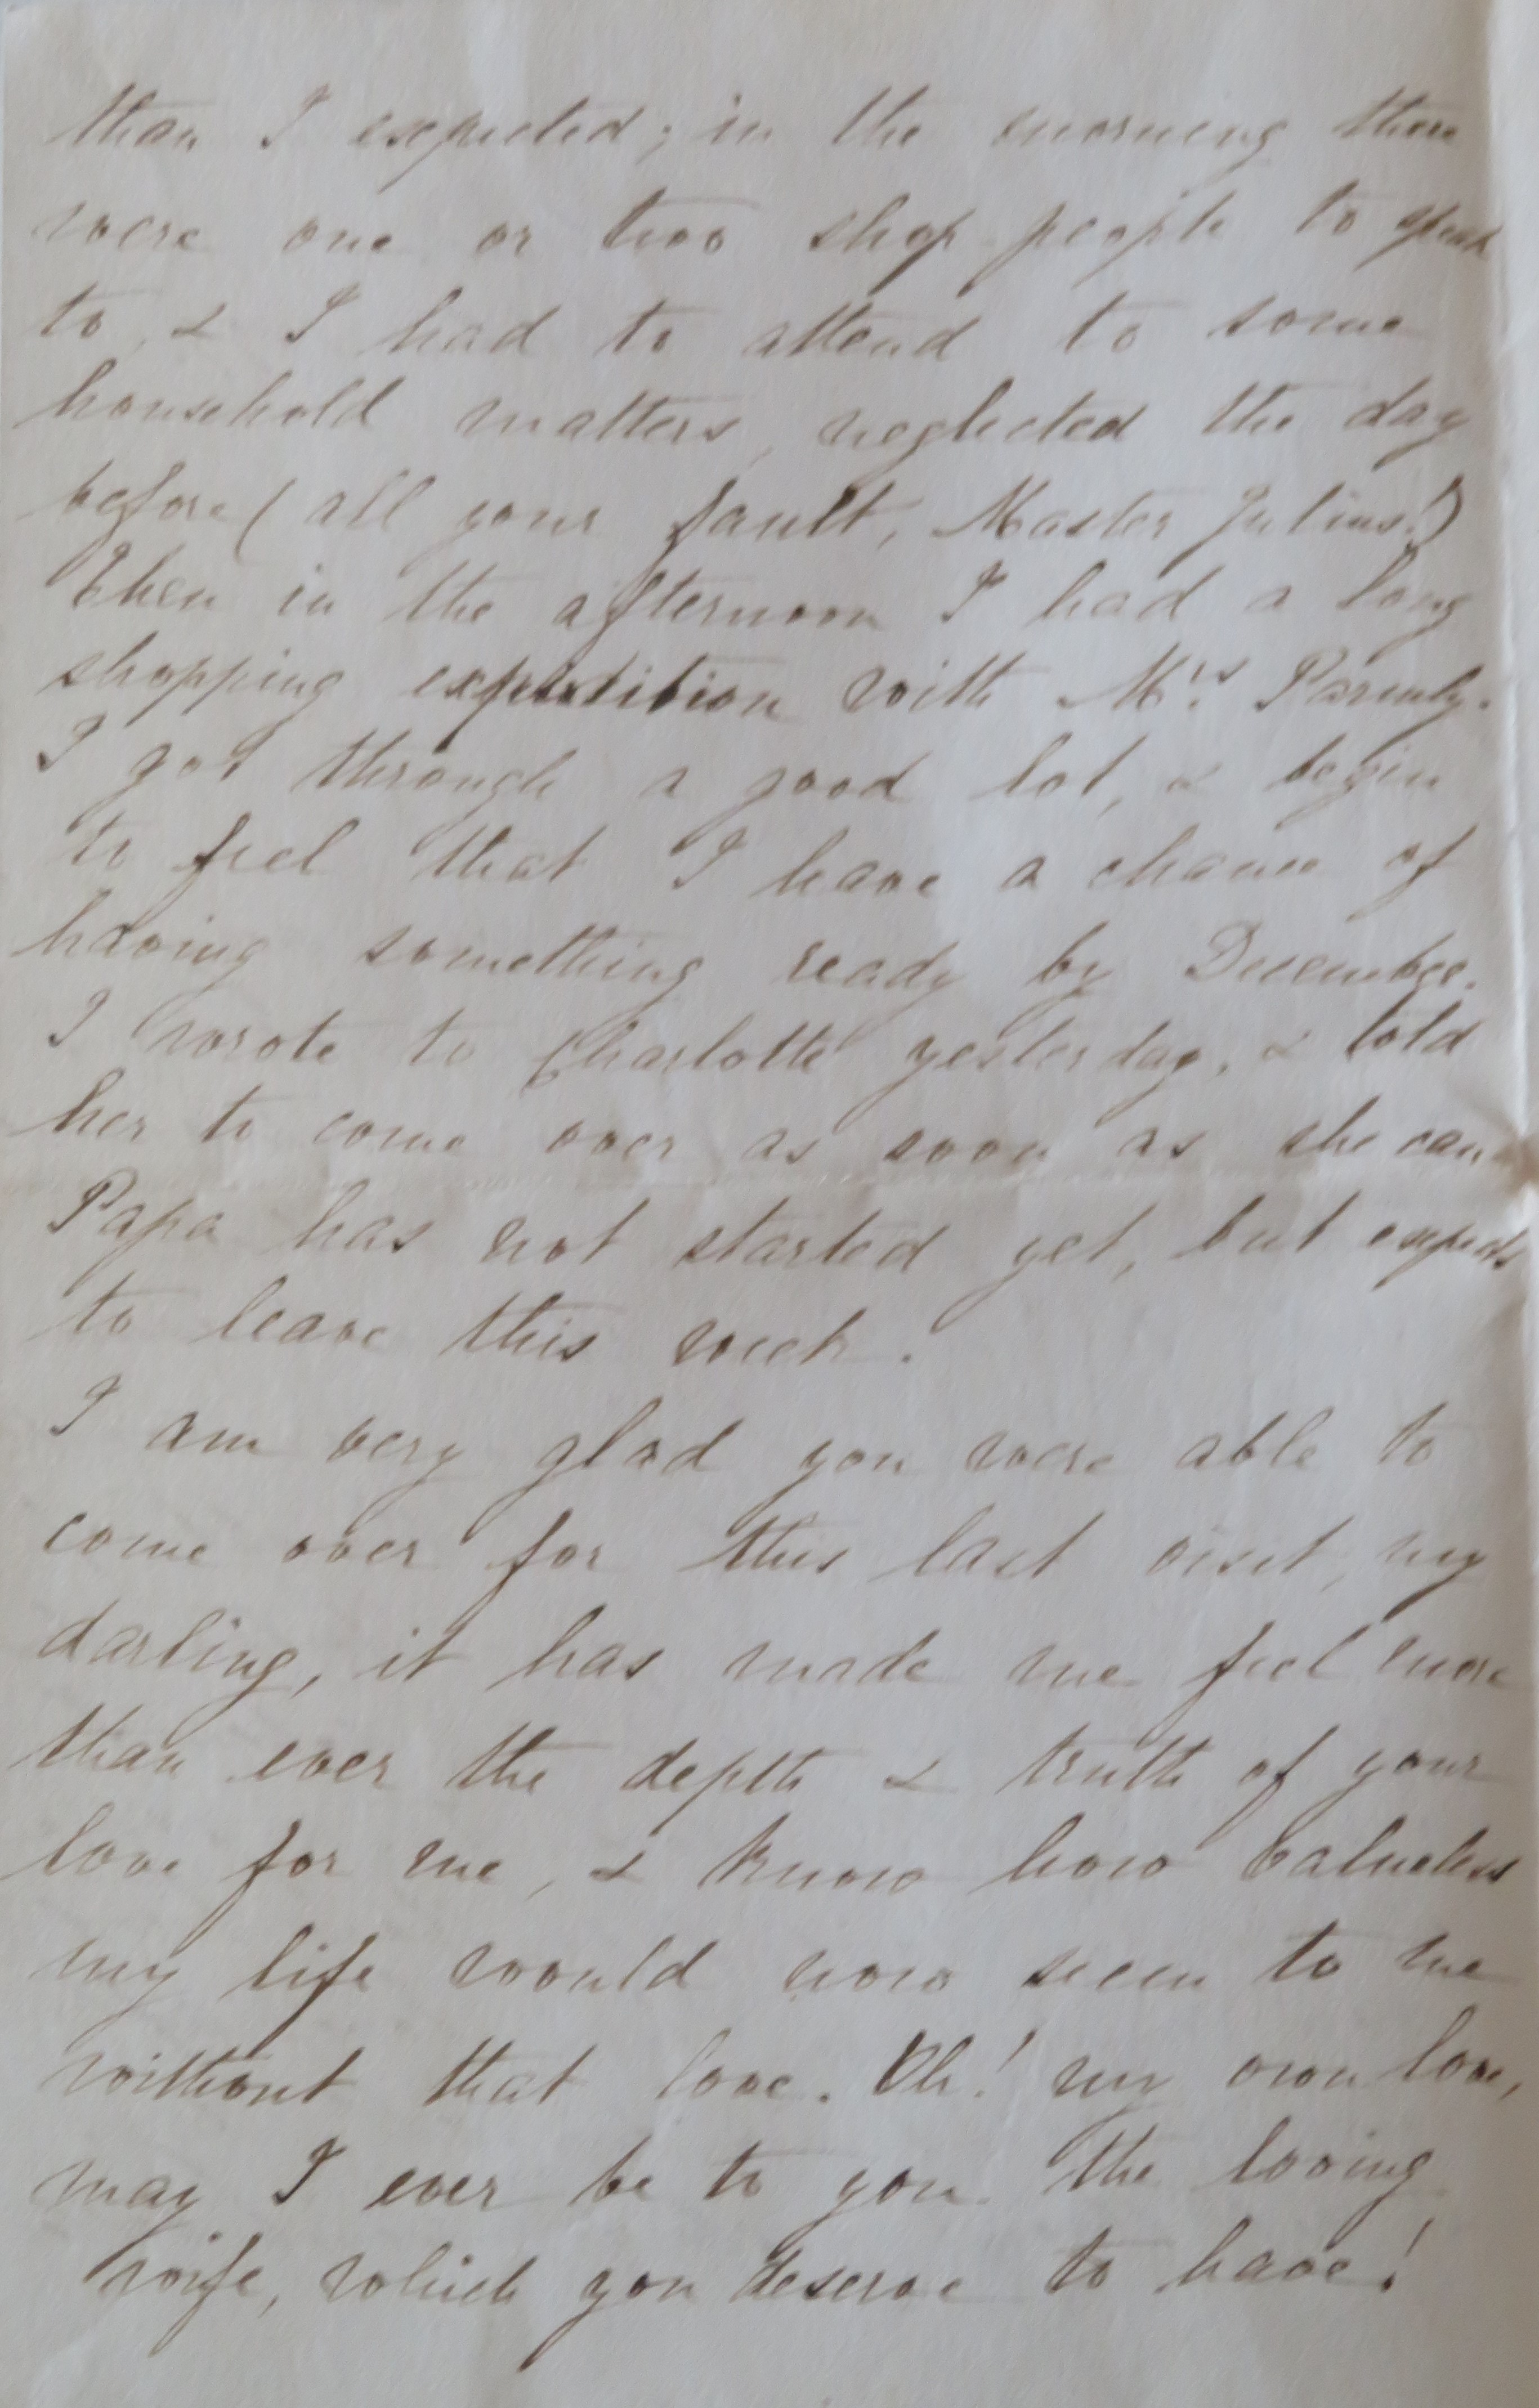 than I expected; in the morning there
were one or two shop people to speak
to, & I had to attend to some
household matters, neglected the day
before (all your fault, Master Julius!)
Then in the afternoon I had a long
shopping expedition with Mrs Parmly.
I got through a good lot, & begin
to feel that I have a chance of
having something ready by December.
I wrote to Charlotte yesterday, & told
her to come over as soon as she can
Papa has not started yet, but expects
to leave this week.
I am very glad you were able to
come over for this last visit, my
darling, it has made me feel more
than ever the depth & truth of your
love for me, & know how valueless
my life would now seem to me
without that love. Oh! my own love,
may I ever be to you the loving
wife, which you deserve to have!